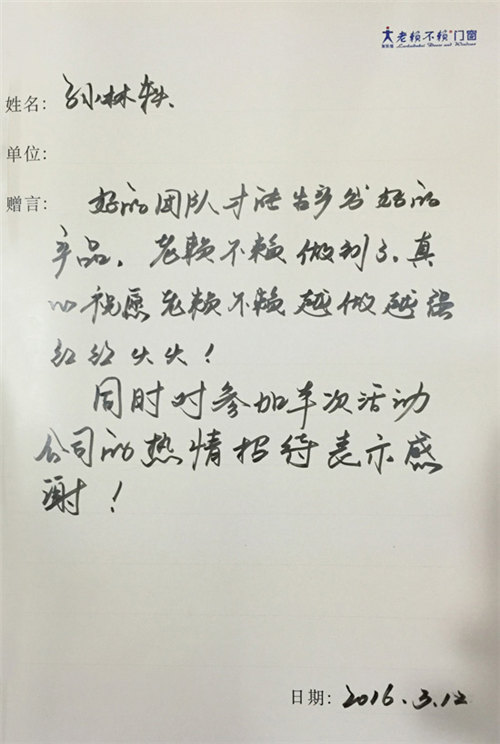 老赖不赖®门窗
Laolaibulai Doors and Windows
姓名：孙林轶
单位：
赠言：好的团队才能生产出好的
产品，老赖不赖做到了，真
心祝愿老赖不赖越做越强
红红火火！
同时对参加本次活动
公司的热情招待表示感
谢！
日期：2016.3.12